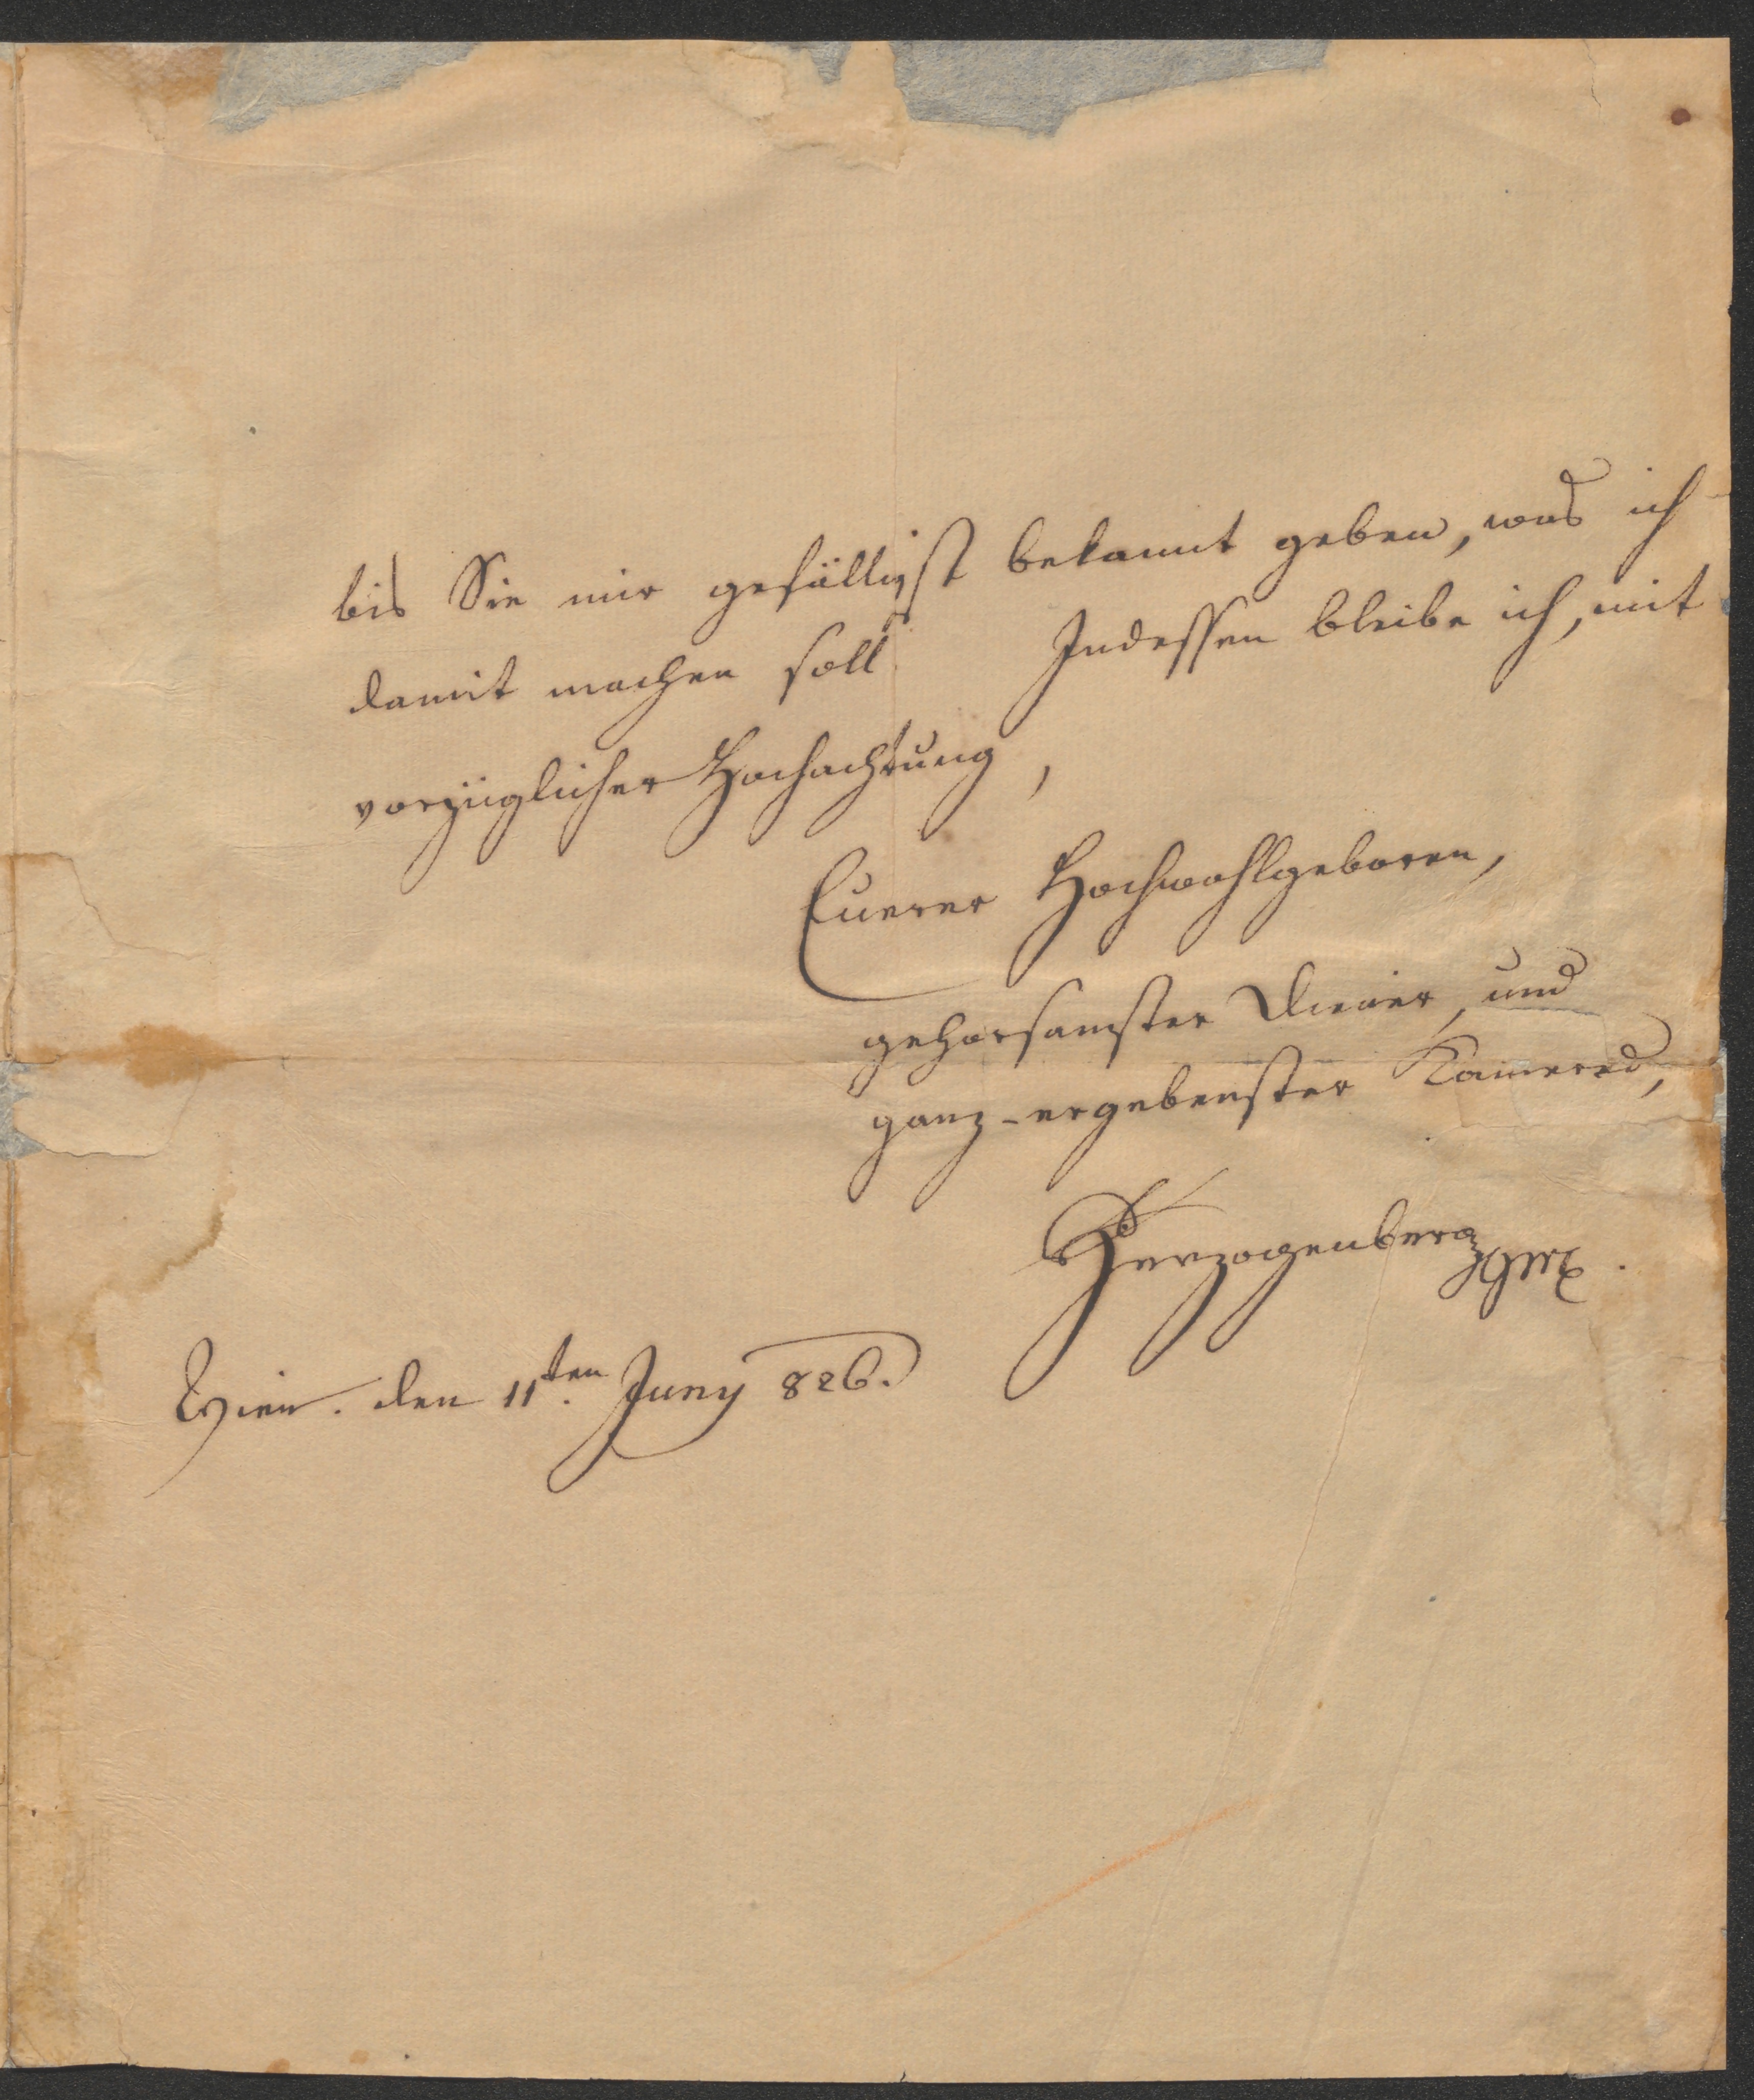 bis Sie mir gefälligst bekannt geben, was ich
damit machen soll. Indessen bleibe ich, mit
vorzüglicher Hochachtung,
Euerer Hochwohlgeboren,
gehorsamster Diener, und
ganz-ergebenster Kamerad,
Herzogenberg
Wien. den 11ten. Juny 826.